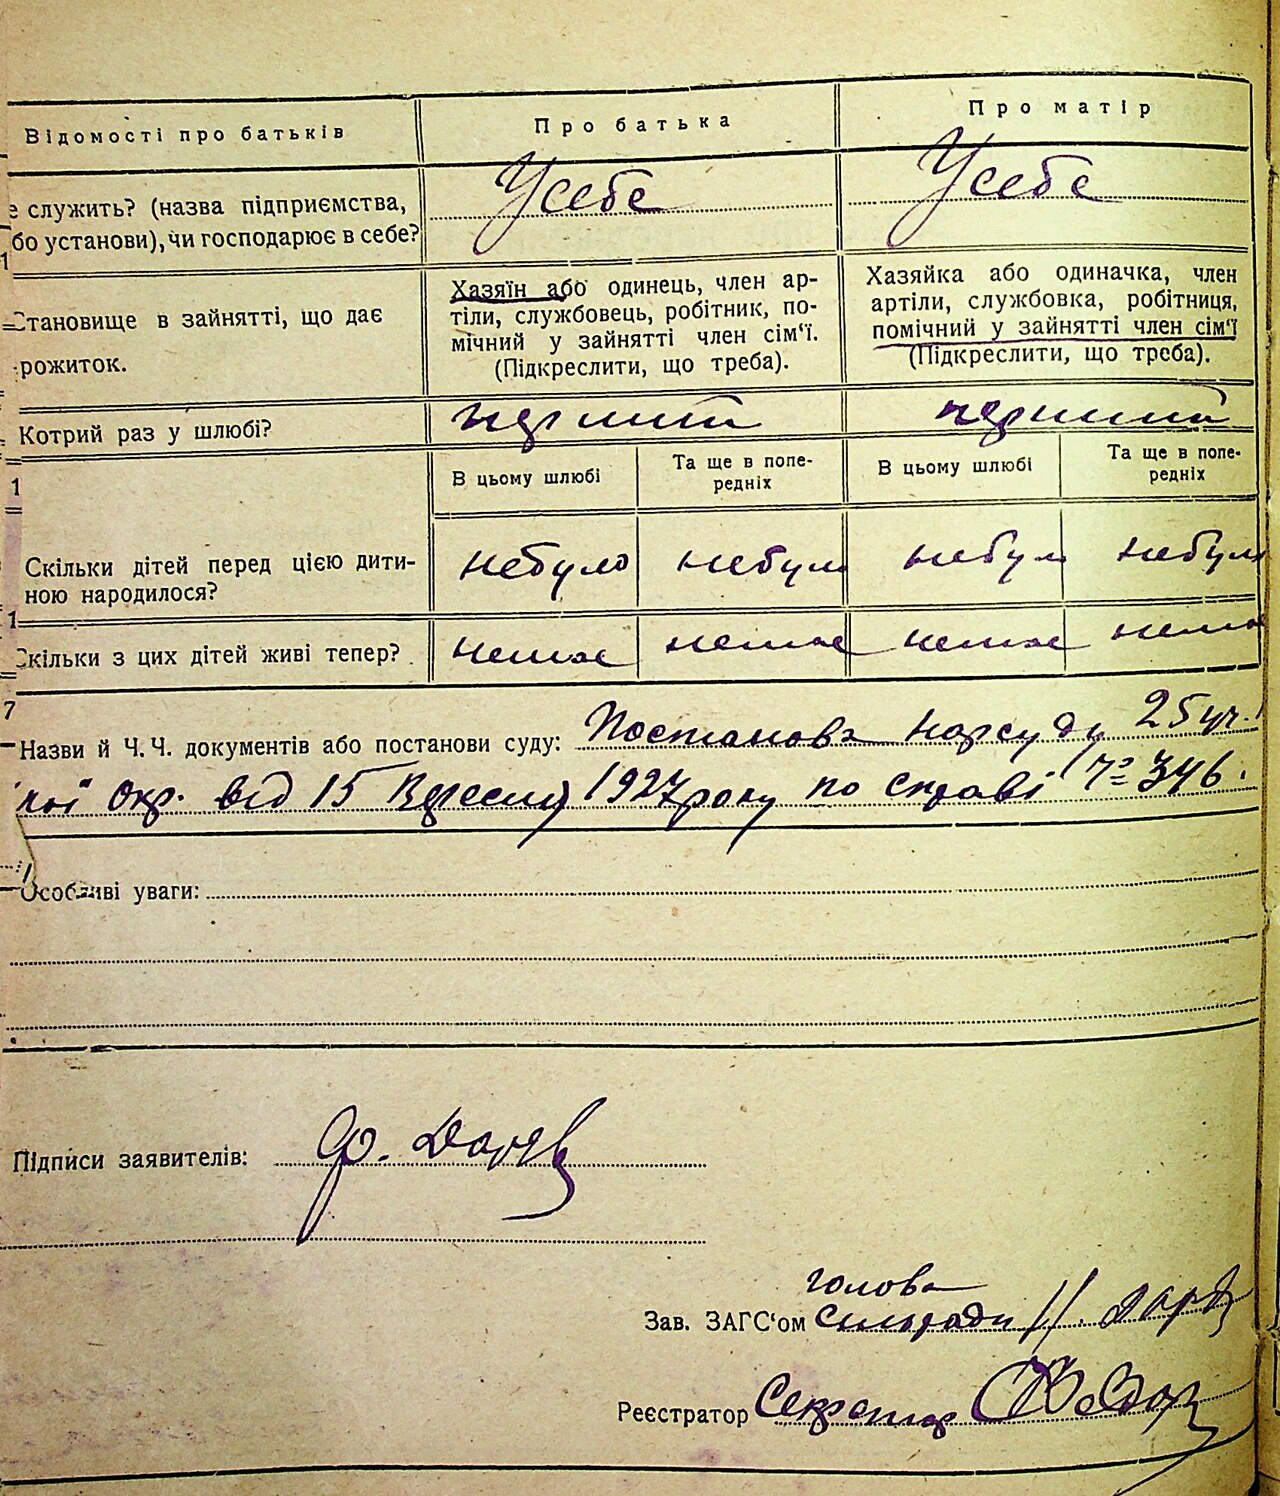 Відомості про батьків
Про батька
Про матір
е служить? (назва підприємства,
бо установи), чи господарює в себе?
У себе
У себе
Становище в зайнятті, що дає
рожиток.
Хазяїн або одинець, член ар-
тіли, службовець, робітник, по-
мічний у зайнятті член сім'ї.
(Підкреслити, що треба).
Хазяйка або одиначка, член
артіли, службовка, робітниця,
помічний у зайнятті член сім'ї
(Підкреслити, що треба).
Котрий раз у шлюбі?
перший
перший
В цьому шлюбі
Та ще в попе-
редніх
В цьому шлюбі
Та ще в попе-
редніх
Скільки дітей перед цією дити-
ною народилося?
небуло
небуло
небуло
небуло
Скільки з цих дітей живі тепер?
немає
немає
немає
немає
Назви й Ч.Ч. документів або постанови суду: Постанова Нарсуду 25 уч.
кої Окр. від 15 Вересня 1927 року по справі № 346.
Особливі уваги:
Підписи заявителів: Ф.
голова
Зав. ЗАГС'ом сільради
Реєстратор Секретар